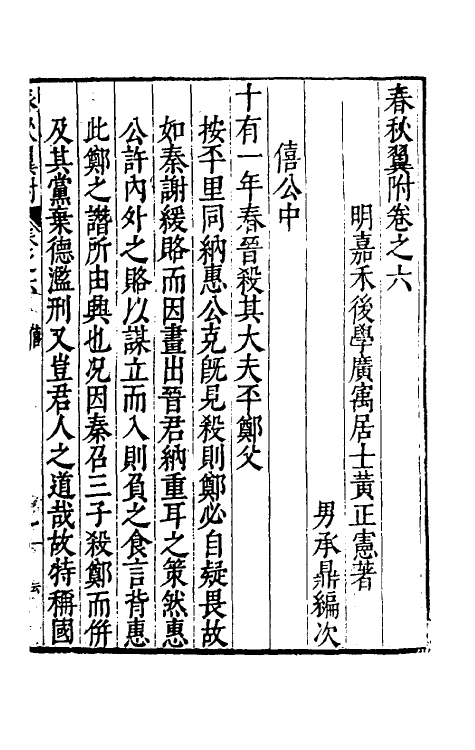 春秋翼附卷之六
明嘉禾後學廣寓居士黃正憲著
男承鼎編次
僖公中
十有一年春晉殺其大夫平鄭父
按平里同納惠公克旣見殺則鄭必自疑畏故
如秦謝緩賂而因畫出晉君納重耳之策然惠
公許內外之賂以謀立而入則負之食言背惠
此鄭之譖所由興也况因秦召三子殺鄭而併
及其黨棄德濫刑又豈君人之道哉故特稱國